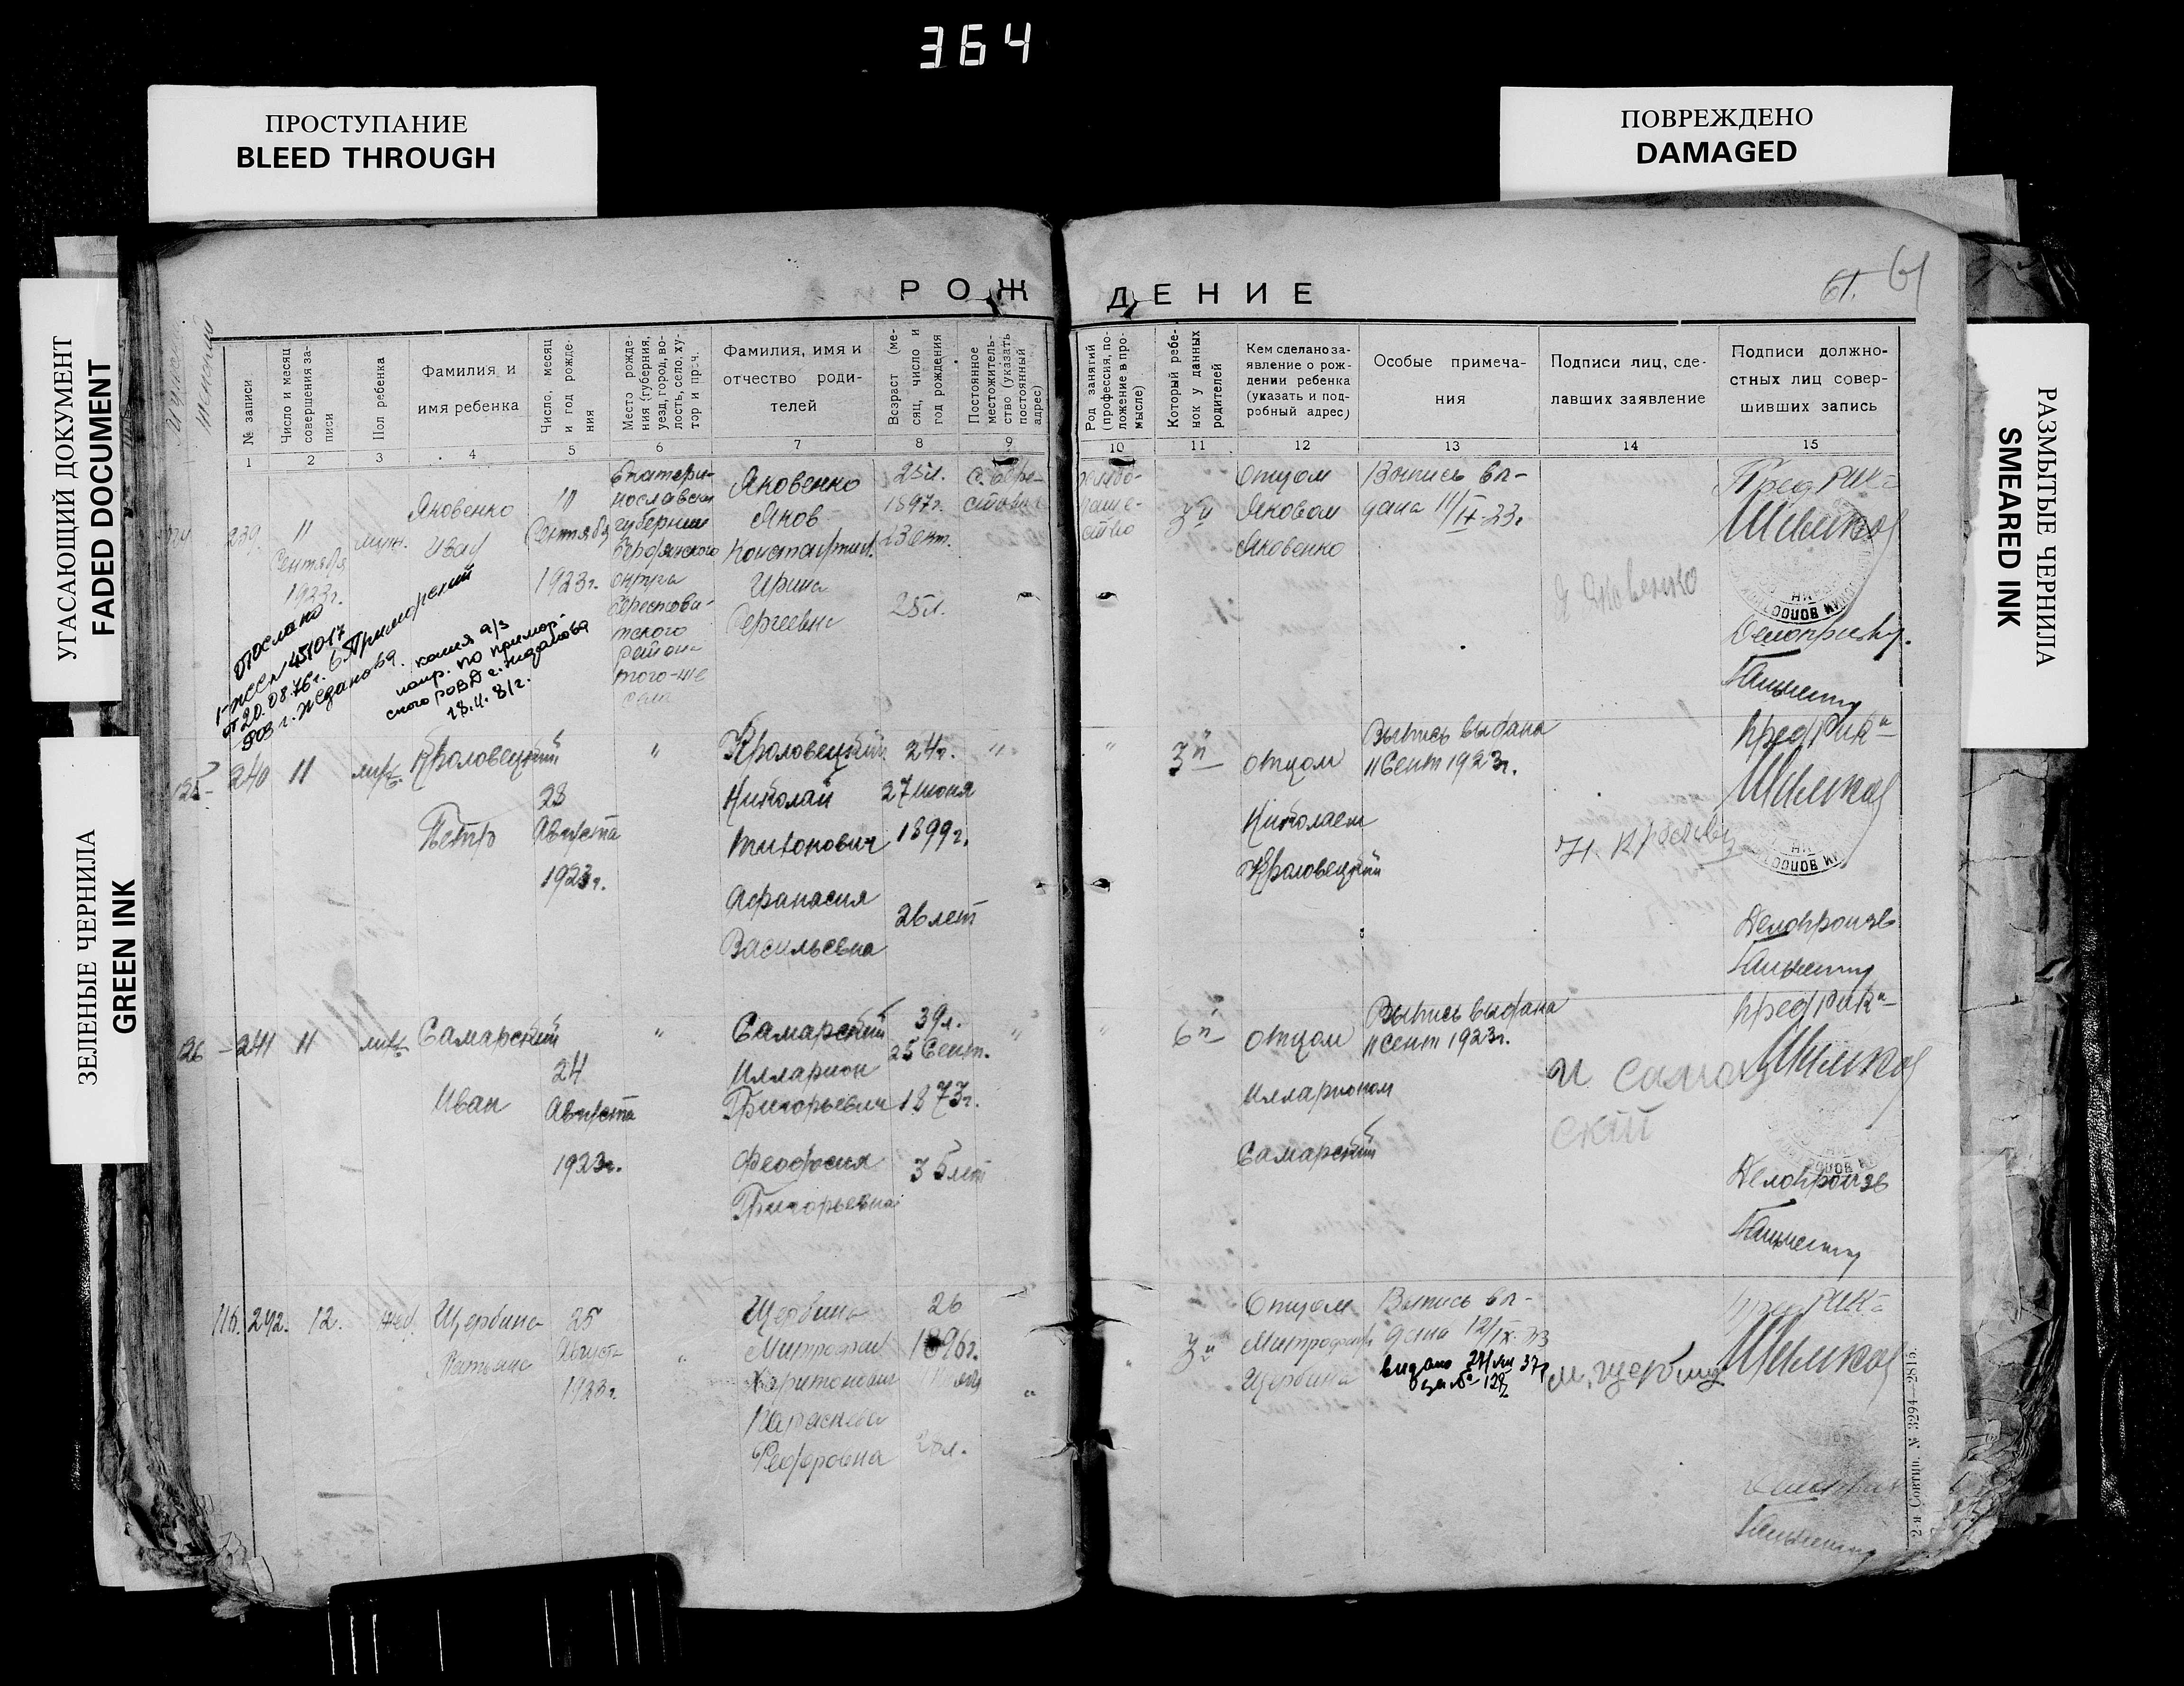 364
ПРОСТУПАНИЕ
BLEED THROUGH
ПОВРЕЖДЕНО
DAMAGED
УГАСАЮЩИЙ ДОКУМЕНТ
FADED DOCUMENT
ЗЕЛЕНЫЕ ЧЕРНИЛА
GREEN INK
РАЗМЫТЫЕ ЧЕРНИЛА
SMEARED INK
РОЖДЕНИЕ
61. 61
№ записи
Число и месяц совершения записи
Пол ребенка
Фамилия и
имя ребенка
Число, месяц
и год рождения
Место рождения (губерния, уезд, город, волость, село, хутор и проч.
Фамилия, имя и
отчество роди-
телей
Возраст (месяц, число и год рождения
Постоянное местожительство (указать постоянный адрес)
Род занятий (профессия, положение в промысле)
Который ребенок у данных родителей
Кем сделано за-
явление о рож-
дении ребенка
(указать и под-
робный адрес)
Особые примеча-
ния
Подписи лиц, сде-
лавших заявление
Подписи должно-
стных лиц совер-
шивших запись
1 2 3 4 5 6 7 8 9 10 11 12 13 14 15
239.
11
Сентября
1923г.
муж.
Яковенко
Иван
11
Сентября
1923г.
Екатери-
нославской
губернии
Бердянского
округа
Берестова-
тского
район
того-же
села
Яковенко
Яков
Константин.
Ирина
Сергеевна
25л.
1897г.
23 окт.
25л.
3й
Отцом
Яковом
Яковенко
Выпись вы-
дана 11/IX-23г.
Я Яковенко
Пред. РИК-а
Делопризв.
отослано
I-ЖС № 451017
от 20.08.76г. в Приморский
РОВ г. Жданова.
копия а/з
напр. по Примор-
ского РОВД г. Жданова
18.11.81г.
125 - 240 11
муж.
Кроловецкий
Петр
28
Августа
1923г.
"
Кроловецкий
Николай
Титонович
Афанасия
Васильевна
24г.
27 июня
1899г.
26 лет
"
"
3й
отцом
Николаем
Кроловецкий
Выпись выдана
11 Сент 1923г.
пред Рик-а
Делопроизв
126 - 241 11
муж.
Самарский
Иван
24
Августа
1923г.
"
Самарский
Илларион
Григорьевич
Феодосия
Григорьевна
39л.
25 Сент.
1873г.
35 лет
"
"
6й
отцом
Илларионом
Самарский
Выпись выдана
11 Сент 1923г.
И Самар
ский
пред Рик-а
Делопроизв
116. 242. 12.
жен.
Щербина
Татьяна
25
Август
1923г
"
Щербина
Митрофан
Харитонович
Параскева
Федоровна
26
1896г.
"
3й
Отцом
Митрофан
Щербина
Выпись вы-
дана 12/IX-23
М. Щербина
2-я Совтип. № 3294—2815.